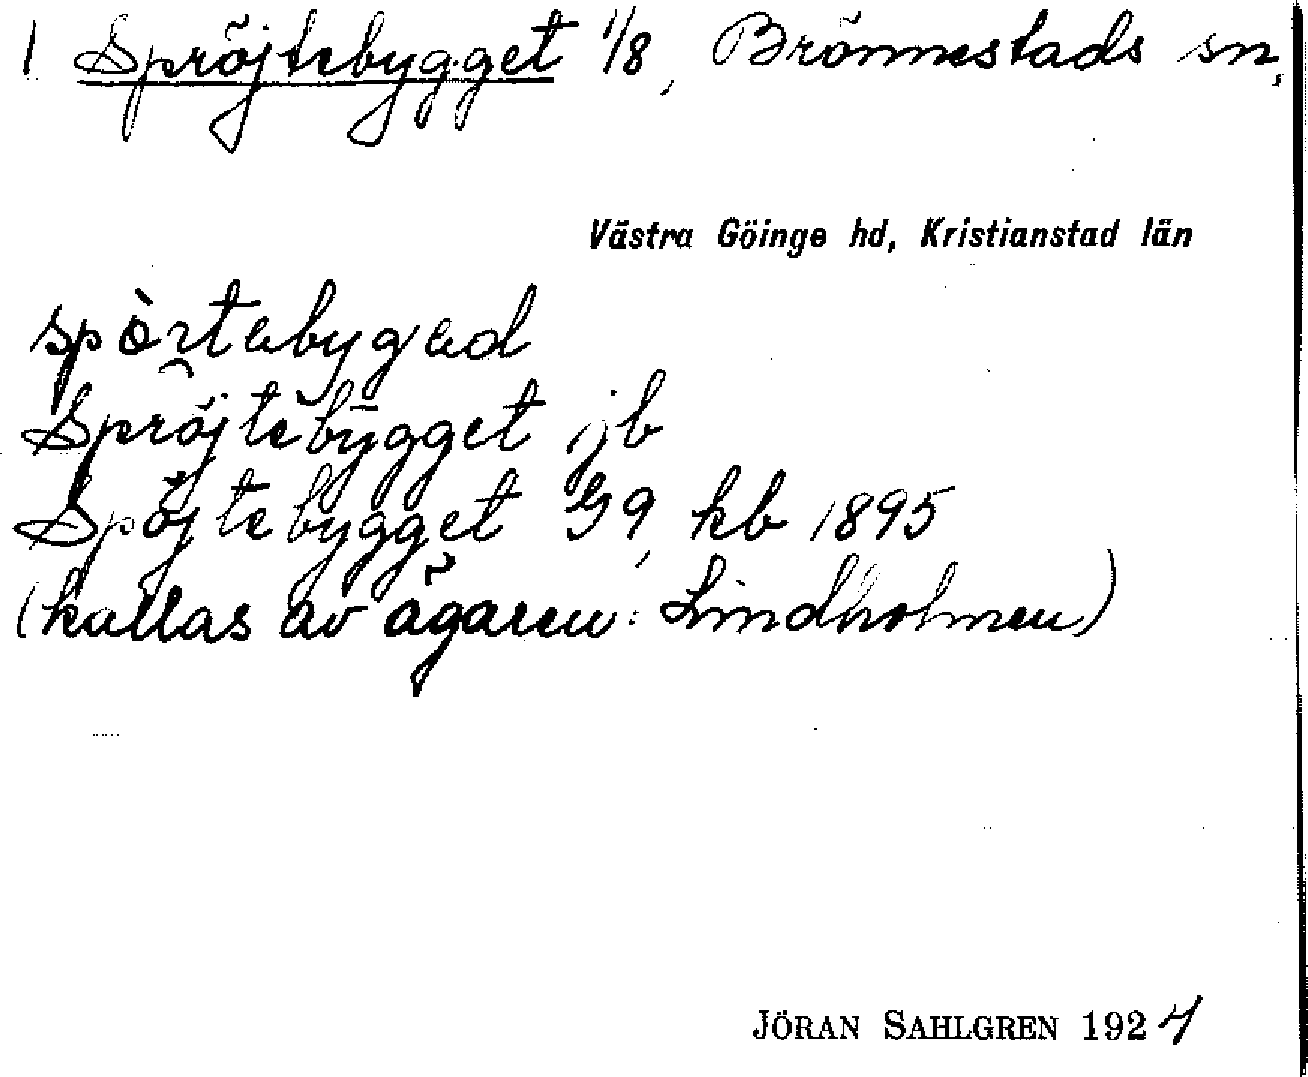 1 Spröjtebygget 1/8, Brönnestads sn,
Västra Göinge hd, Kristianstad län
spòrtabygad
Spröjtebygget jb
Spöjtebygget G9, kb 1895
(kallas av ägaren: Lindholmen)
JÖRAN SAHLGREN 1924